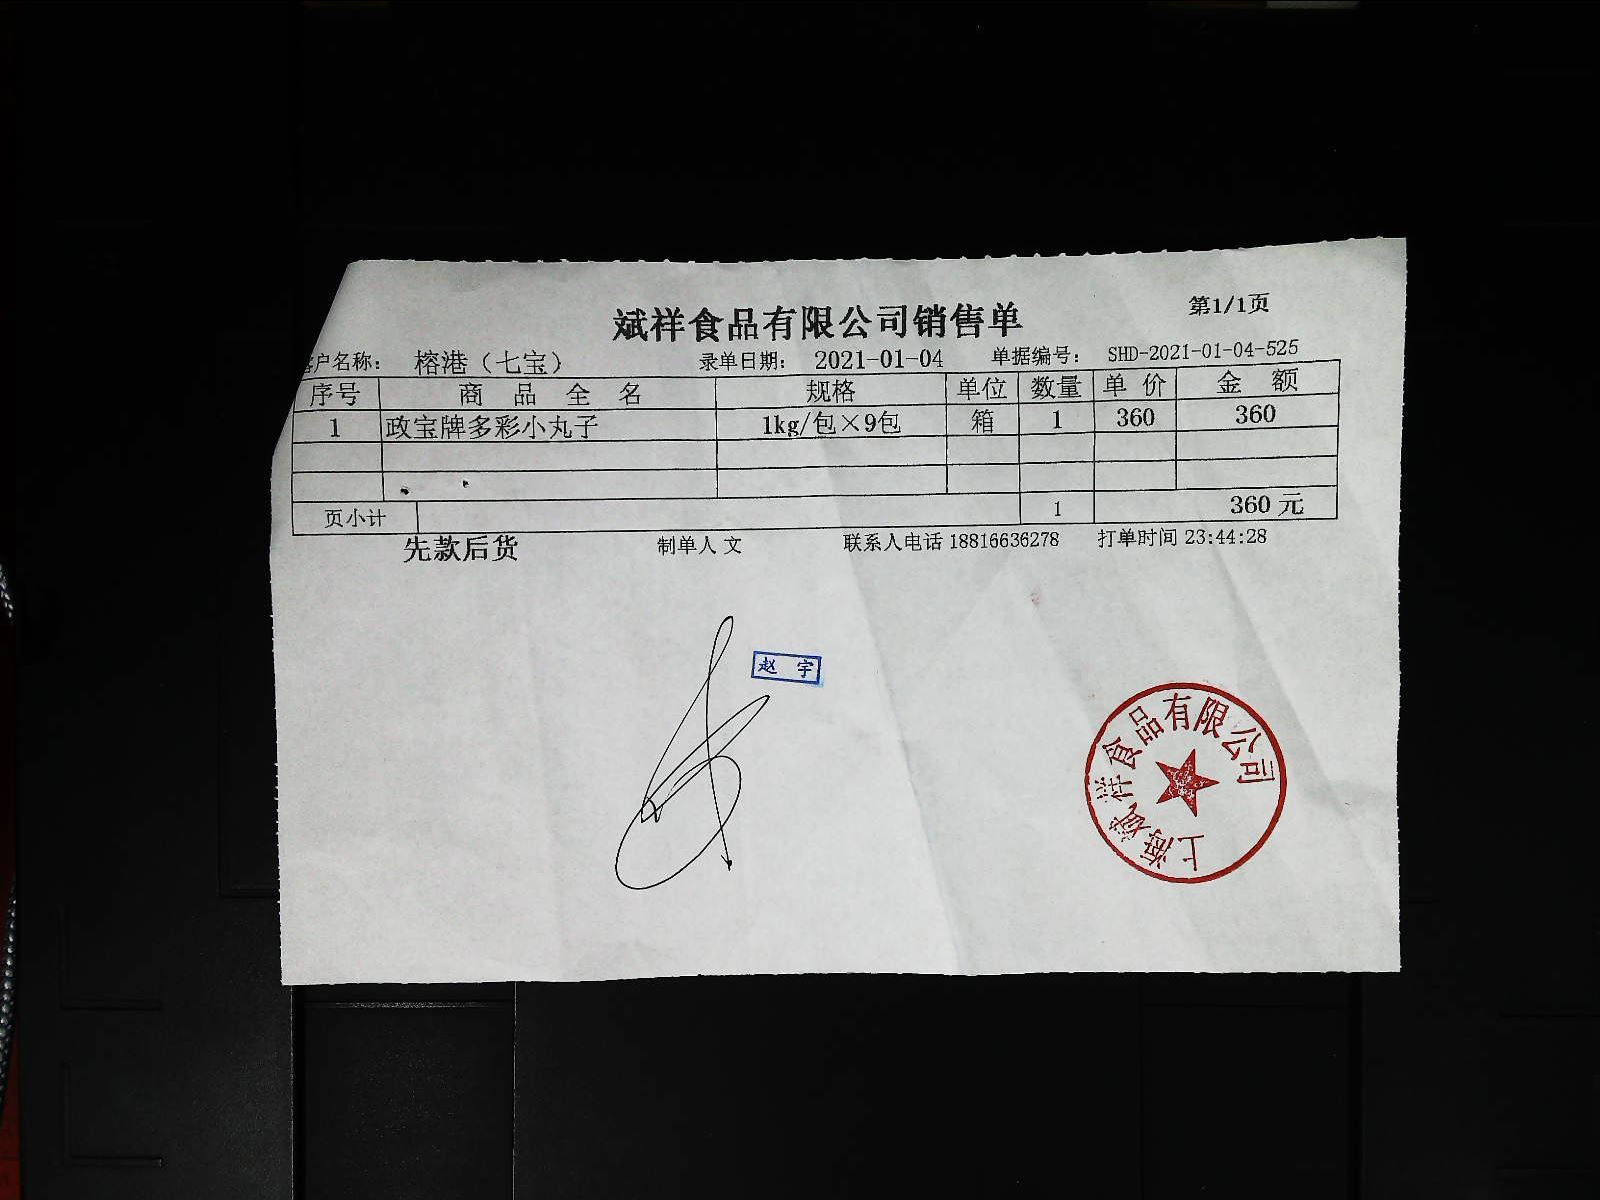 斌祥食品有限公司销售单
第1/1页
客户名称： 榕港（七宝） 录单日期： 2021-01-04 单据编号： SHD-2021-01-04-525
序号 商 品 全 名 规格 单位 数量 单 价 金 额
1 政宝牌多彩小丸子 1kg/包×9包 箱 1 360 360
页小计 1 360 元
先款后货 制单人 文 联系人电话 18816636278 打单时间 23:44:28
赵 宇
上海斌祥食品有限公司